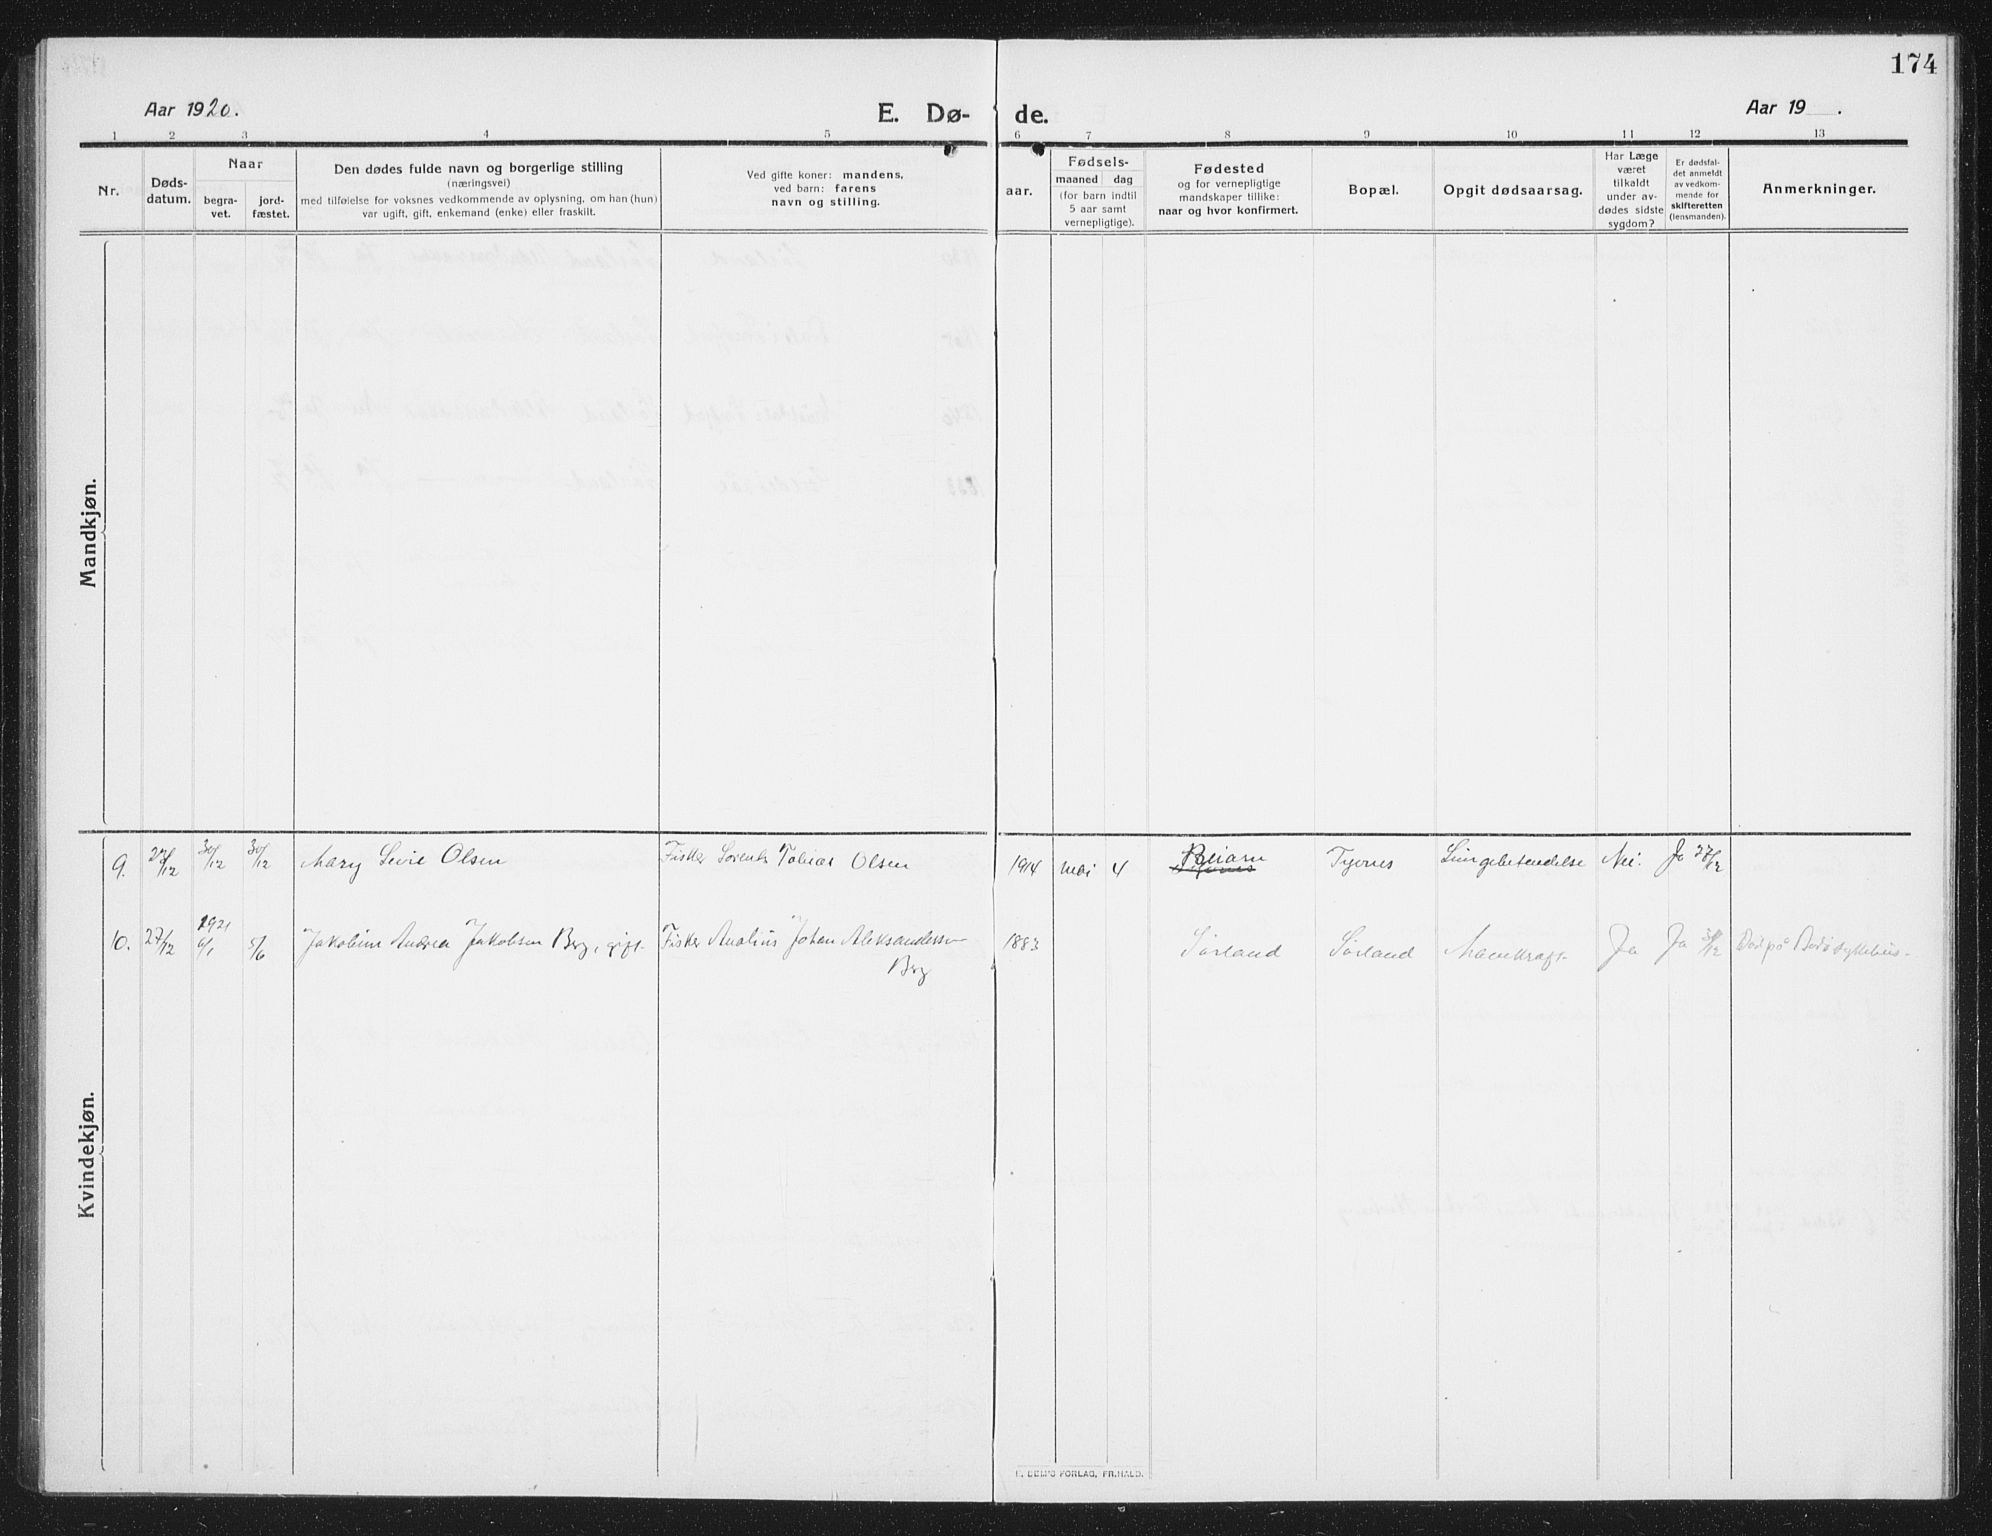 174
Aar 1920.
E. Dø- de.
Aar 19 .
1 2 3 4 5 6 7 8 9 10 11 12 13
Nr.
Døds-
datum.
Naar
begra-
vet.
jord-
fæstet.
Den dødes fulde navn og borgerlige stilling
(næringsvei)
med tilføielse for voksnes vedkommende av oplysning, om han (hun)
var ugift, gift, enkemand (enke) eller fraskilt.
Ved gifte koner: mandens,
ved barn: farens
navn og stilling.
aar.
Fødsels-
maaned dag
(for barn indtil
5 aar samt
vernepligtige).
Fødested
og for vernepligtige
mandskaper tillike:
naar og hvor konfirmert.
Bopæl.
Opgit dødsaarsag.
Har Læge
været
tilkaldt
under av-
dødes sidste
sygdom?
Er dødsfal-
det anmeldt
av vedkom-
mende for
skifteretten
(lensmanden).
Anmerkninger.
Mandkjøn.
Kvindekjøn.
9. 30/12 30/12 Mary Olsen Fisker Tobias Olsen 1914 mai 4 Beiarn Lungebetændelse Nei. Ja 27/12
10. 27/12 1921 6/1 5/6 Andrea Jakobsen Berg, gift Fisker Analius Johan Aleksandersen Berg 1883 Sørland Sørland Mavekræft Ja Ja Død på Bodø sykehus.
E. SEM'S FORLAG, FR.HALD.